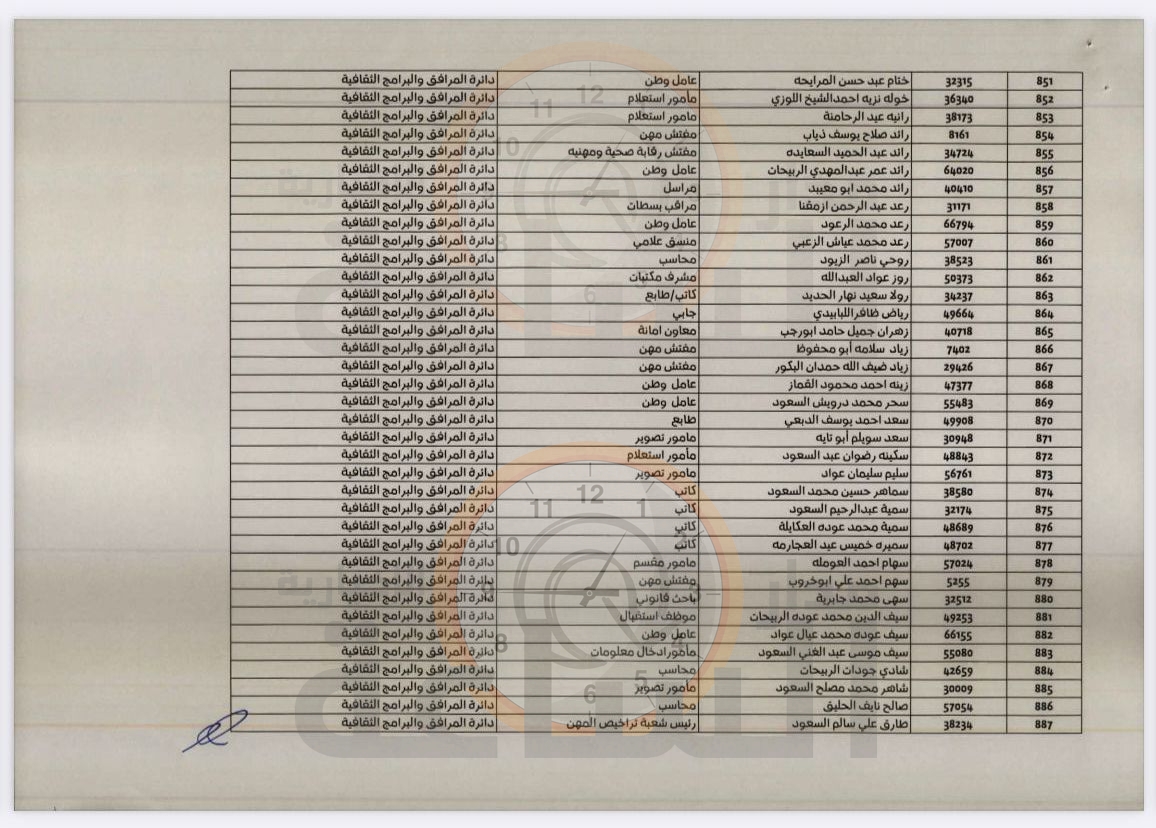 851 32315 ختام عبد حسن المرايحه عامل وطن دائرة المرافق والبرامج الثقافية
852 36340 خوله نزيه احمدالشيخ اللوزي مأمور استعلام دائرة المرافق والبرامج الثقافية
853 38173 رانيه عيد الرحامنة مامور استعلام دائرة المرافق والبرامج الثقافية
854 8161 رائد صلاح يوسف ذياب مفتش مهن دائرة المرافق والبرامج الثقافية
855 34724 رائد عبد الحميد السعايده مفتش رقابة صحية ومهنيه دائرة المرافق والبرامج الثقافية
856 64020 رائد عمر عبدالمهدي الربيحات عامل وطن دائرة المرافق والبرامج الثقافية
857 40410 رائد محمد ابو معيبد مراسل دائرة المرافق والبرامج الثقافية
858 31171 رعد عبد الرحمن ازمقنا مراقب بسطات دائرة المرافق والبرامج الثقافية
859 66794 رعد محمد الرعود عامل وطن دائرة المرافق والبرامج الثقافية
860 57007 رعد محمد عياش الزعبي منسق علامي دائرة المرافق والبرامج الثقافية
861 38523 روحي ناصر الزيود محاسب دائرة المرافق والبرامج الثقافية
862 50373 روز عواد العبدالله مشرف مكتبات دائرة المرافق والبرامج الثقافية
863 34237 رولا سعيد نهار الحديد كاتب/طابع دائرة المرافق والبرامج الثقافية
864 49664 رياض ظافراللبابيدي جابي دائرة المرافق والبرامج الثقافية
865 40718 زهران جميل حامد ابورجب معاون امانة دائرة المرافق والبرامج الثقافية
866 7402 زياد سلامه أبو محفوظ مفتش مهن دائرة المرافق والبرامج الثقافية
867 29426 زياد ضيف الله حمدان البكور مفتش مهن دائرة المرافق والبرامج الثقافية
868 47377 زينه احمد محمود القماز عامل وطن دائرة المرافق والبرامج الثقافية
869 55483 سحر محمد درويش السعود عامل وطن دائرة المرافق والبرامج الثقافية
870 49908 سعد احمد يوسف الدبعي طابع دائرة المرافق والبرامج الثقافية
871 30948 سعد سويلم أبو تايه مامور تصوير دائرة المرافق والبرامج الثقافية
872 48843 سكينه رضوان عبد السعود مأمور استعلام دائرة المرافق والبرامج الثقافية
873 56761 سليم سليمان عواد مامور تصوير دائرة المرافق والبرامج الثقافية
874 38580 سماهر حسين محمد السعود كاتب دائرة المرافق والبرامج الثقافية
875 32174 سمية عبدالرحيم السعود كاتب دائرة المرافق والبرامج الثقافية
876 48689 سمية محمد عوده العكايلة كاتب دائرة المرافق والبرامج الثقافية
877 48702 سميره خميس عيد العجارمه كاتب دائرة المرافق والبرامج الثقافية
878 57024 سهام احمد العومله مامور مقسم دائرة المرافق والبرامج الثقافية
879 5255 سهم احمد علي ابوخروب مفتش مهن دائرة المرافق والبرامج الثقافية
880 32512 سهى محمد جابرية باحث قانوني دائرة المرافق والبرامج الثقافية
881 49253 سيف الدين محمد عوده الربيحات موظف استقبال دائرة المرافق والبرامج الثقافية
882 66155 سيف عوده محمد عيال عواد عامل وطن دائرة المرافق والبرامج الثقافية
883 55080 سيف موسى عبد الغني السعود مأمورادخال معلومات دائرة المرافق والبرامج الثقافية
884 42659 شادي جودات الربيحات محاسب دائرة المرافق والبرامج الثقافية
885 30009 شاهر محمد مصلح السعود مأمور تصوير دائرة المرافق والبرامج الثقافية
886 57054 صالح نايف الحليق محاسب دائرة المرافق والبرامج الثقافية
887 38234 طارق علي سالم السعود رئيس شعبة تراخيص المهن دائرة المرافق والبرامج الثقافية